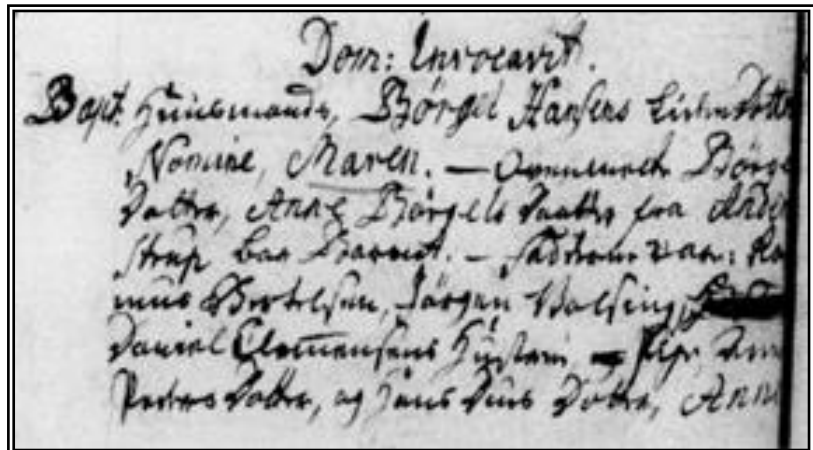 Dom: Invocavit.
Bapt. Huusmands, Børgel Hansens liden Dotter
Nomine, Maren. — Børgel
Datter, Anne Børgels Daatter fra Ander
strup bar Barnet. — Faddrene var: Ras
mus Bertelsen, Jørgen Balsing,
Daniel Clemensens Hustrue, Anne
Peders Datter, og Jens Datter, Anne